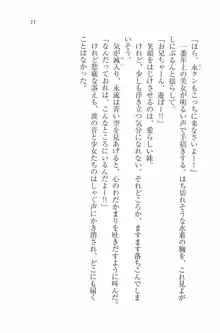 11
「ほら、永クンもこっちに来なさいよー！」
一番年上の美女が明るい声で手招きする。はち切れそうな水着の胸を、これ見よが
しにぷるんと揺らして。
「お兄ちゃーん、遊ぼー!!」
笑顔をはじけさせるのは、愛らしい妹。
けれど、少しも浮き立つ気分になれない。それどころか、ますます落ちこんでしまう。
気が滅入り、永流は青い空を見あげると、心のわだかまりを吐きだすように叫んだ。
「なんで、こんなところにいるんだよー!!」
けれど悲痛な訴えは、波の音と少女たちのはしゃぐ声にかき消され、どこにも届く
ことはなかった。